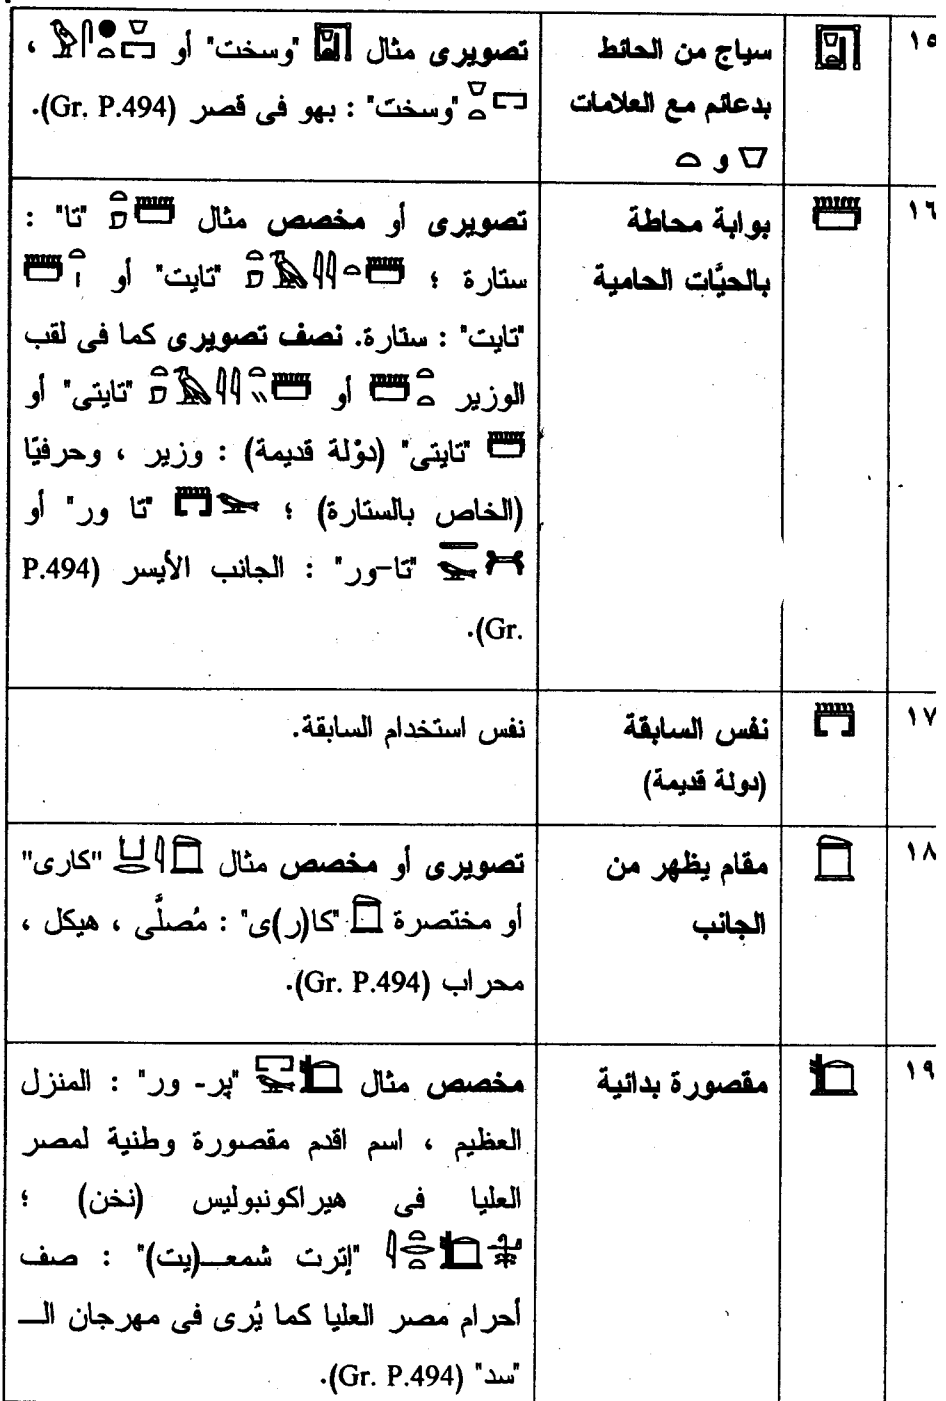 ١٥
سياج من الحائط
بدعائم مع العلامات
و
تصويرى مثال "وسخت" أو ،
"وسخت" : بهو فى قصر (Gr. P.494).
١٦
بوابة محاطة
بالحيَّات الحامية
تصويرى أو مخصص مثال "تا" :
ستارة ؛ "تايت" أو
"تايت" : ستارة. نصف تصويرى كما فى لقب
الوزير أو "تايتى" أو
"تايتى" (دوْلة قديمة) : وزير ، وحرفيًا
(الخاص بالستارة) ؛ "تا ور" أو
"تا-ور" : الجانب الأيسر (P.494
Gr.).
١٧
نفس السابقة
(دولة قديمة)
نفس استخدام السابقة.
١٨
مقام يظهر من
الجانب
تصويرى أو مخصص مثال "كارى"
أو مختصرة "كا(ر)ى" : مُصلَّى ، هيكل ،
محراب (Gr. P.494).
١٩
مقصورة بدائية
مخصص مثال "پر- ور" : المنزل
العظيم ، اسم اقدم مقصورة وطنية لمصر
العليا فى هيراكونبوليس (نخن) ؛
"إترت شمعـــ(يت)" : صف
أحرام مصر العليا كما يُرى فى مهرجان الـــ
"سد" (Gr. P.494).